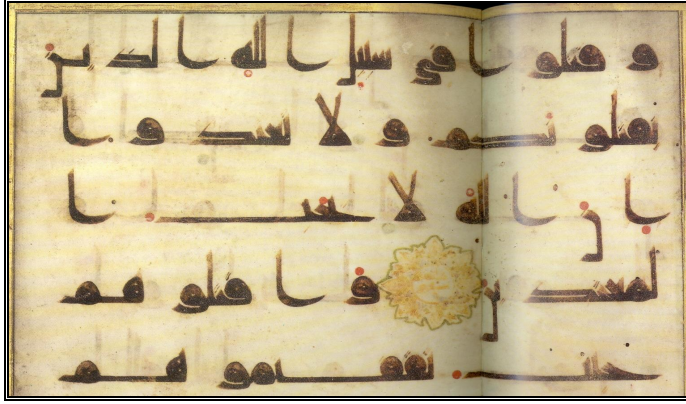 و قتلوا في سبيل الله الذين
يقتلو نكم و لا تعتد و ا
ا ن الله لا يحب ا
لمعتد ين و ا قتلو هم
حيث ثقفتمو هم